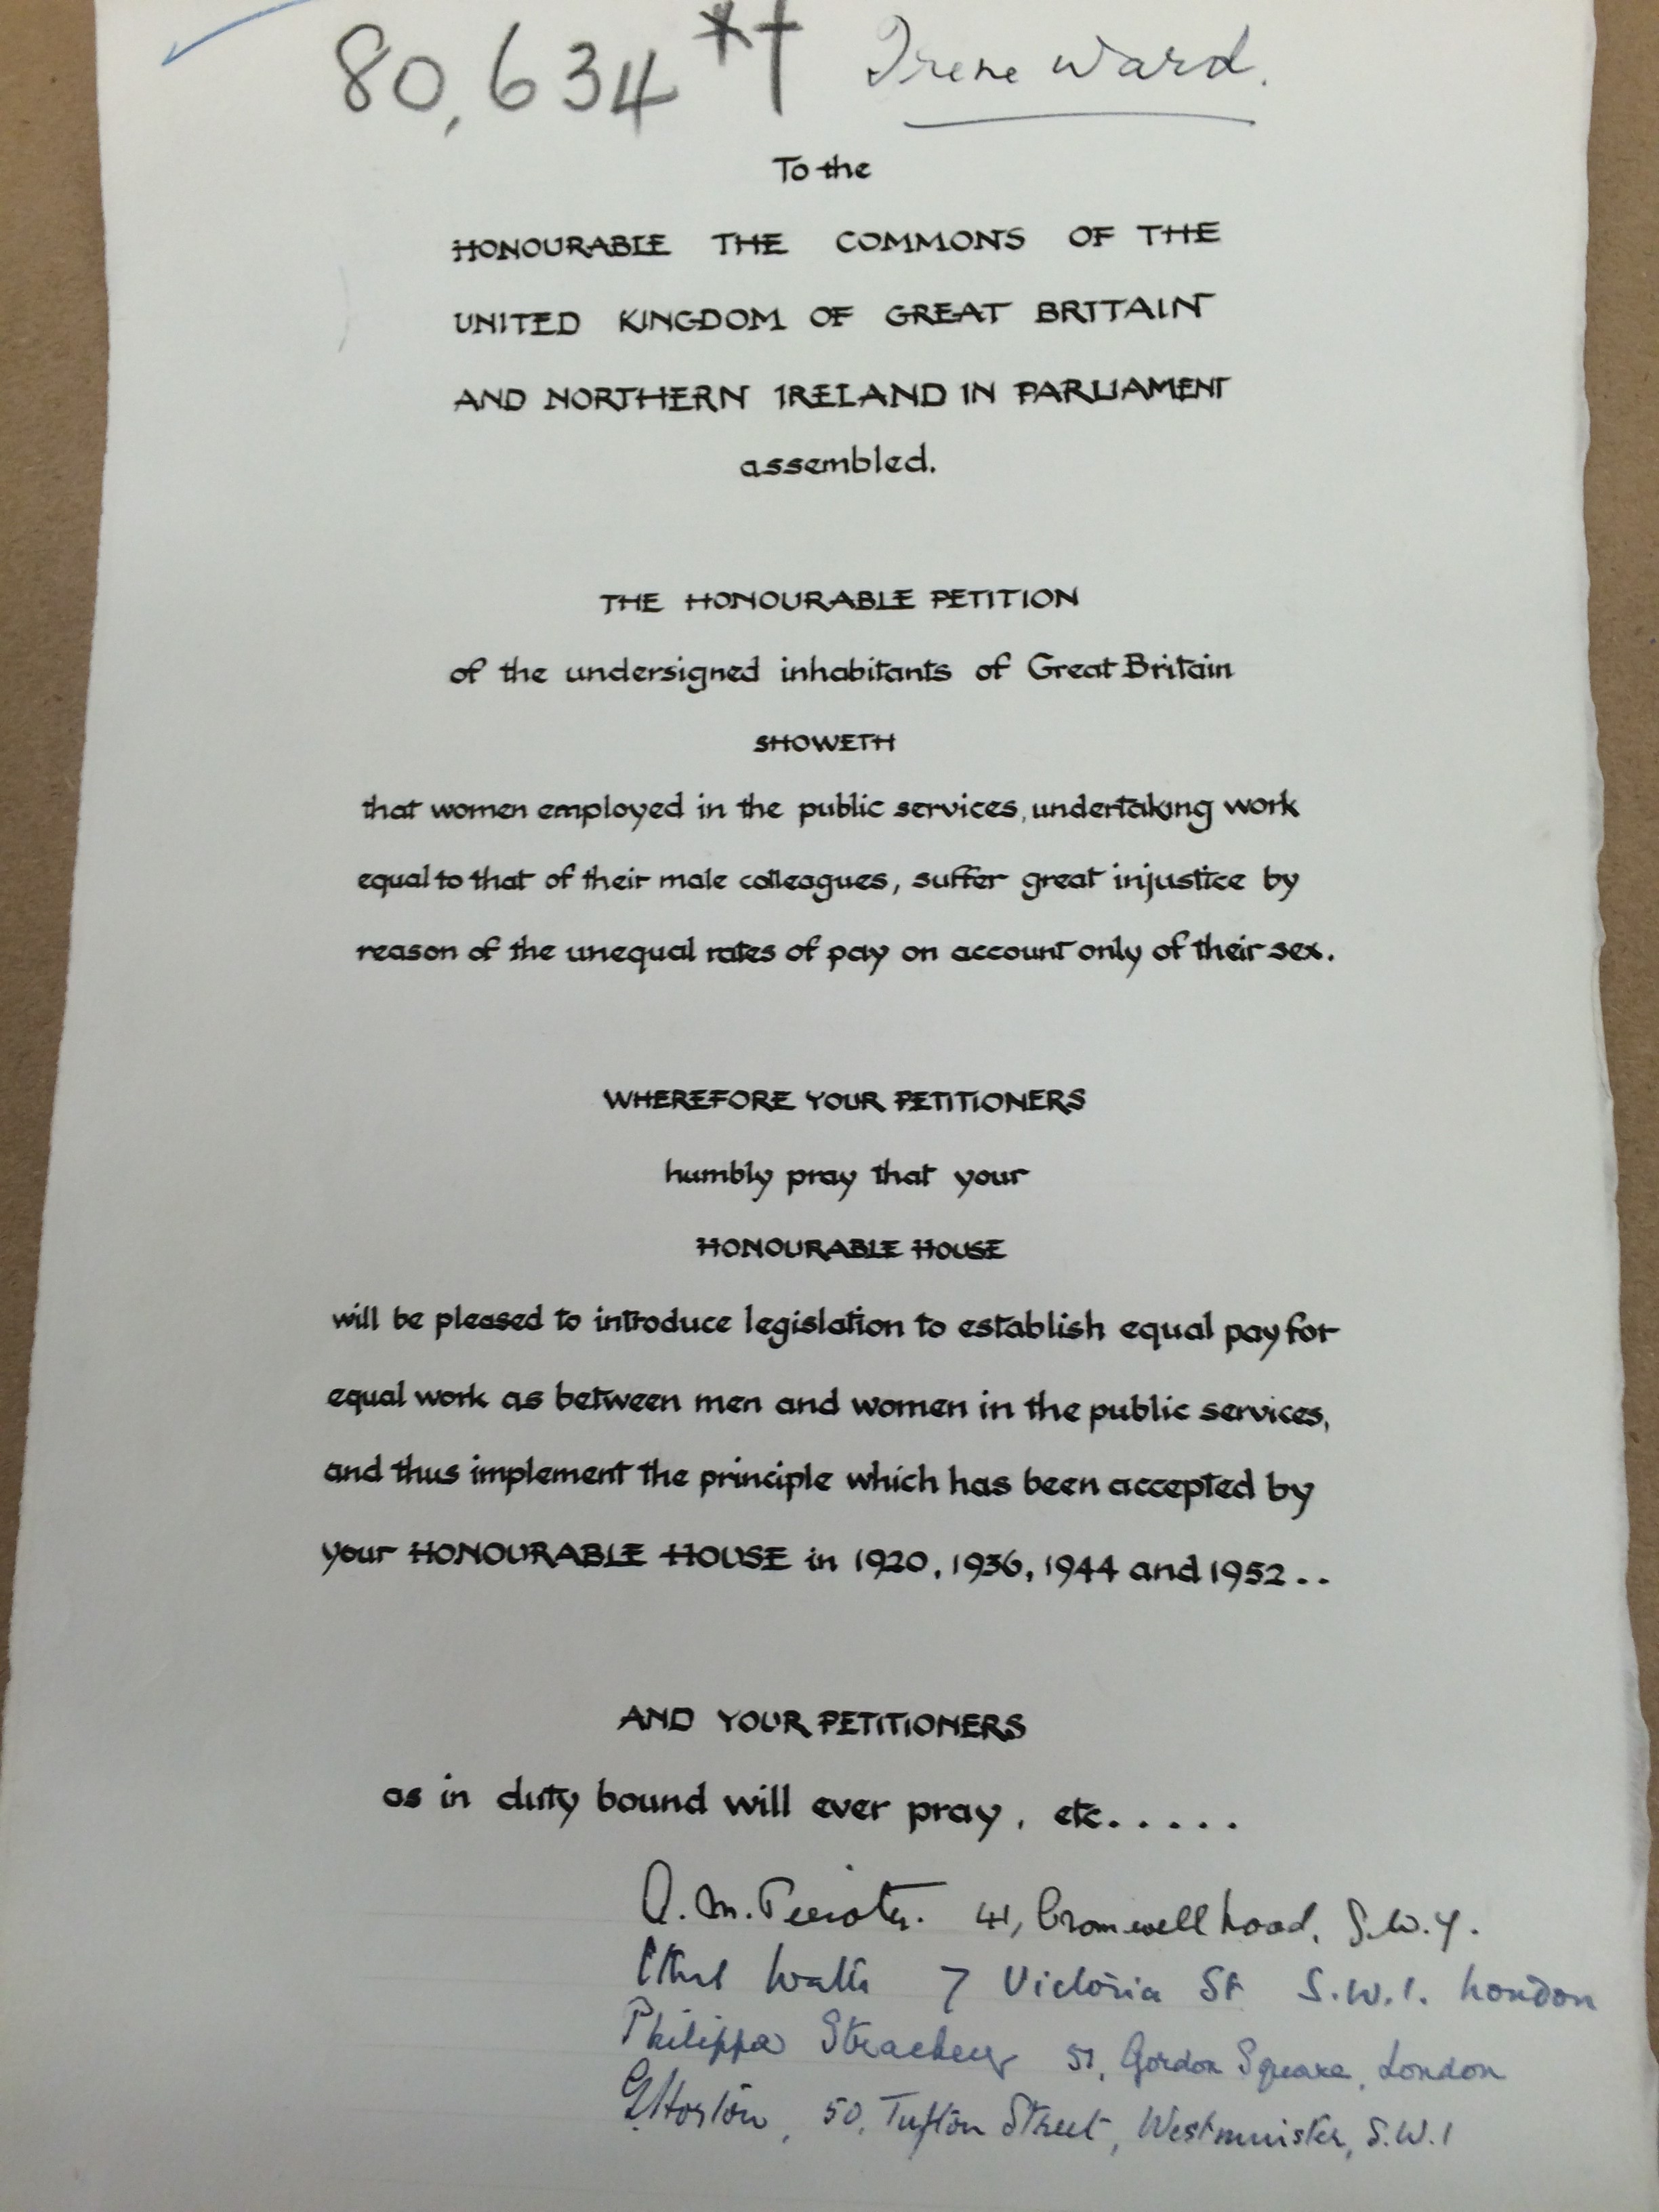 80,634*† Irene Ward.
To the
HONOURABLE THE COMMONS OF THE
UNITED KINGDOM OF GREAT BRITAIN
AND NORTHERN IRELAND IN PARLIAMENT
assembled.
THE HONOURABLE PETITION
of the undersigned inhabitants of Great Britain
SHOWETH
that women employed in the public services, undertaking work
equal to that of their male colleagues, suffer great injustice by
reason of the unequal rates of pay on account only of their sex.
WHEREFORE YOUR PETITIONERS
humbly pray that your
HONOURABLE HOUSE
will be pleased to introduce legislation to establish equal pay for
equal work as between men and women in the public services,
and thus implement the principle which has been accepted by
your HONOURABLE HOUSE in 1920, 1936, 1944 and 1952..
AND YOUR PETITIONERS
as in duty bound will ever pray, etc.....
41, Cromwell Road, S.W.7.
Ethel Watts 7 Victoria St S.W.1. London
Philippa Strachey 51, Gordon Square, London
Horton, 50, Tufton Street, Westminster, S.W.1